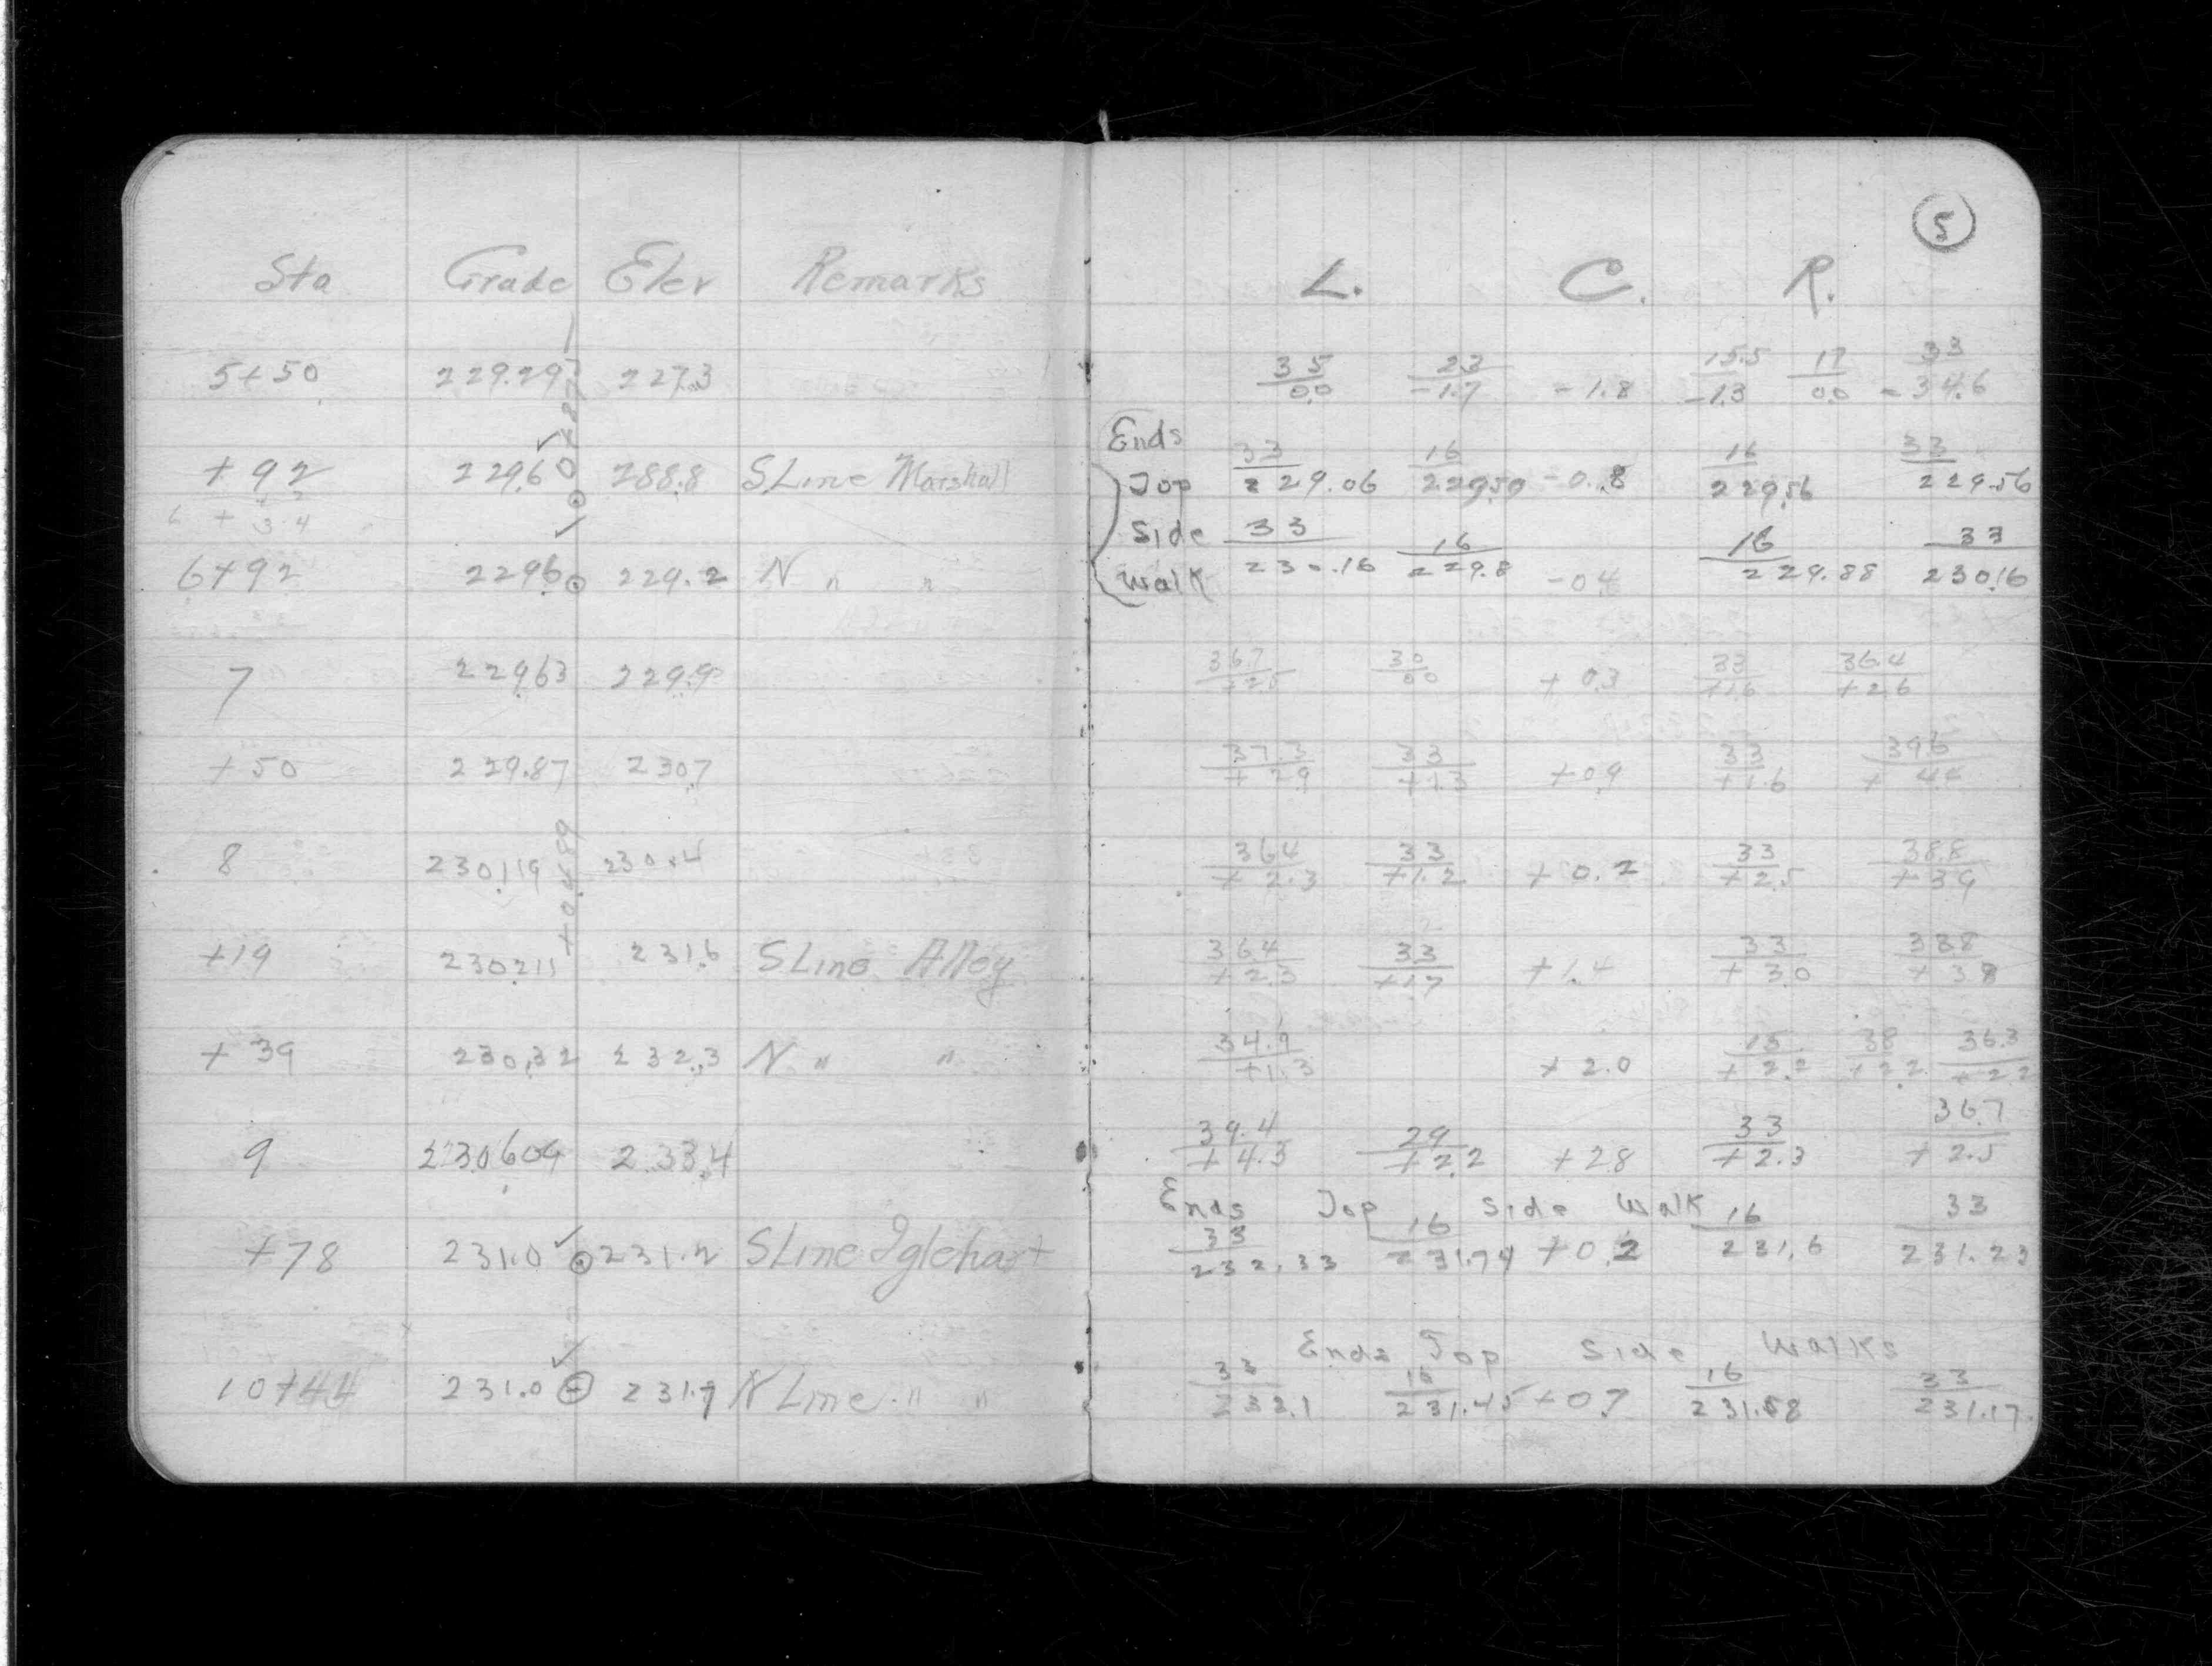 5
Sta Grade Elev Remarks L. C. R.
35 23 15.5 17 33
5+50 229.29 227.3 0.0 -1.7 -1.8 -1.3 0.0 -34.6
Ends
33 16 16 33
+92 229.6 288.8 S Line Marshall Top 229.06 229.50 -0.8 229.56 229.56
6 + 34 Side 33 16 16 33
6+92 229.6 229.2 N " " Walk 230.16 229.8 -0.4 229.88 230.16
36.7 30 33 36.4
7 229.63 229.9 +2.5 0.0 +0.3 +1.6 +2.6
37.3 33 33 39.6
+50 229.87 230.7 +2.9 +1.3 +0.9 +1.6 +4.4
36.4 33 33 38.8
8 230.119 230.4 +2.3 +1.2 +0.2 +2.5 +3.9
36.4 33 33 38.8
+19 230.211 231.6 S Line Alley +2.3 +1.7 +1.4 +3.0 +3.8
34.9 15 38 36.3
+39 230.32 232.3 N " " +1.3 +2.0 +2.2 +2.2 +2.2
39.4 29 33 36.7
9 230.609 233.4 +4.3 +2.2 +2.8 +2.3 +2.5
Ends Top Side Walk
33 16 16 33
+78 231.0 231.2 S Line Iglehart 232.33 231.74 +0.2 231.6 231.23
Ends Top Side Walks
33 16 16 33
10+44 231.0 231.7 N Line " " 232.1 231.45 +0.7 231.58 231.17